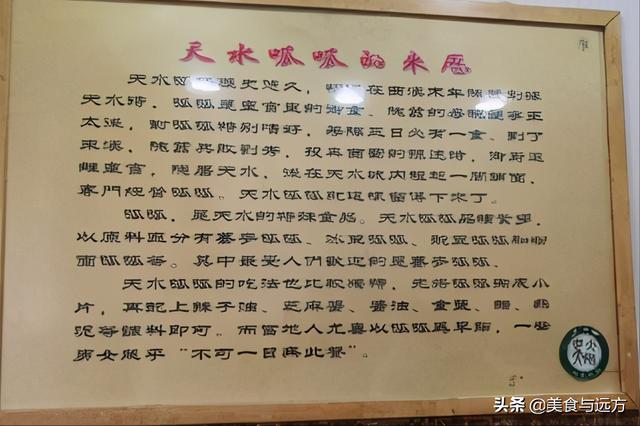 天水呱呱的来历
天水呱呱历史悠久，相传在西汉末年隗嚣割据
天水时，呱呱是皇宫里的御食。隗嚣的母亲朔宁王
太后，对呱呱特别嗜好，每隔三日必有一食。到了
东汉，隗嚣兵败刘秀，投奔西蜀的孙述时，御厨逃
离皇宫，隐居天水，后在天水城内租起一间铺面，
专门经营呱呱。天水呱呱就这样留传下来了。
呱呱，是天水的特殊食品。天水呱呱品种繁多，
以原料区分有荞麦呱呱、冰豆呱呱、豌豆呱呱和粉
面呱呱等。其中最受人们欢迎的是荞麦呱呱。
天水呱呱的吃法也比较独特，先将呱呱弄成小
片，再配上辣子油、芝麻酱、酱油、食盐、醋、蒜
泥等调料即可。而当地人尤喜以呱呱为早点，一些
男女几乎“不可一日无此餐”。
头条 @美食与远方